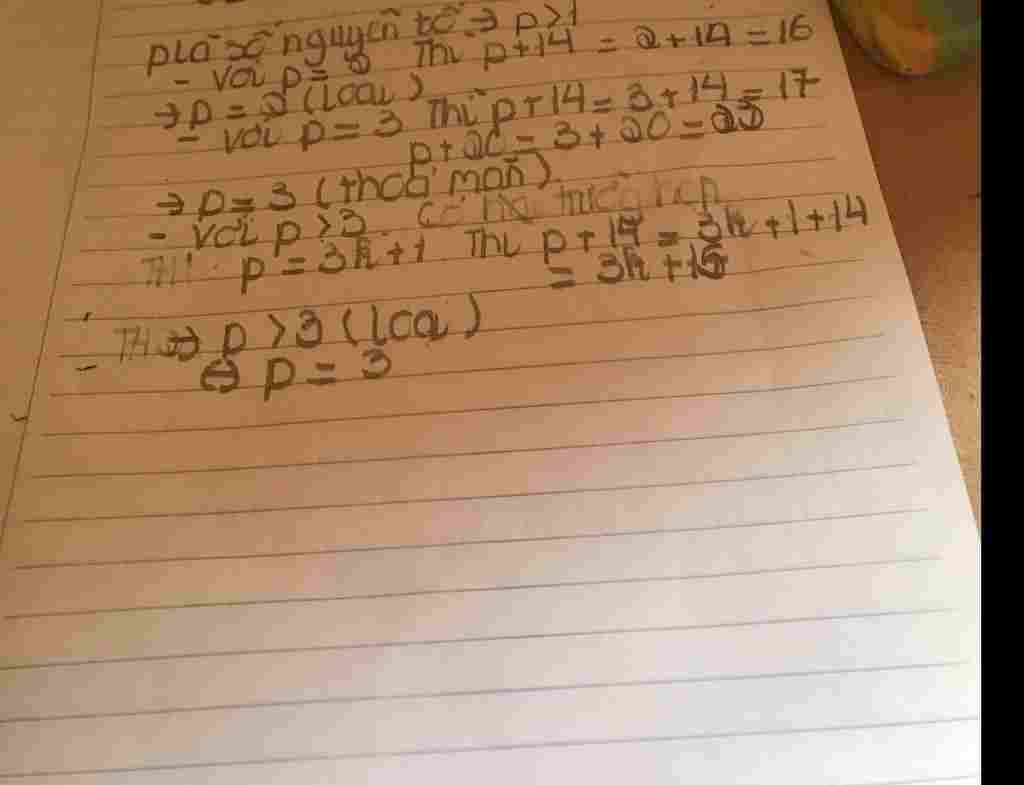 p là số nguyên tố ⇒ p > 1
- Với p = 2 Thì p + 14 = 2 + 14 = 16
⇒ p = 2 (loại)
- Với p = 3 Thì p + 14 = 3 + 14 = 17
p + 20 = 3 + 20 = 23
⇒ p = 3 (thoả mãn)
- Với p > 3 có trường hợp
TH1 p = 3k + 1 Thì p + 14 = 3k + 1 + 14
= 3k + 15
TH ⇒ p > 3 (loại)
⇔ p = 3